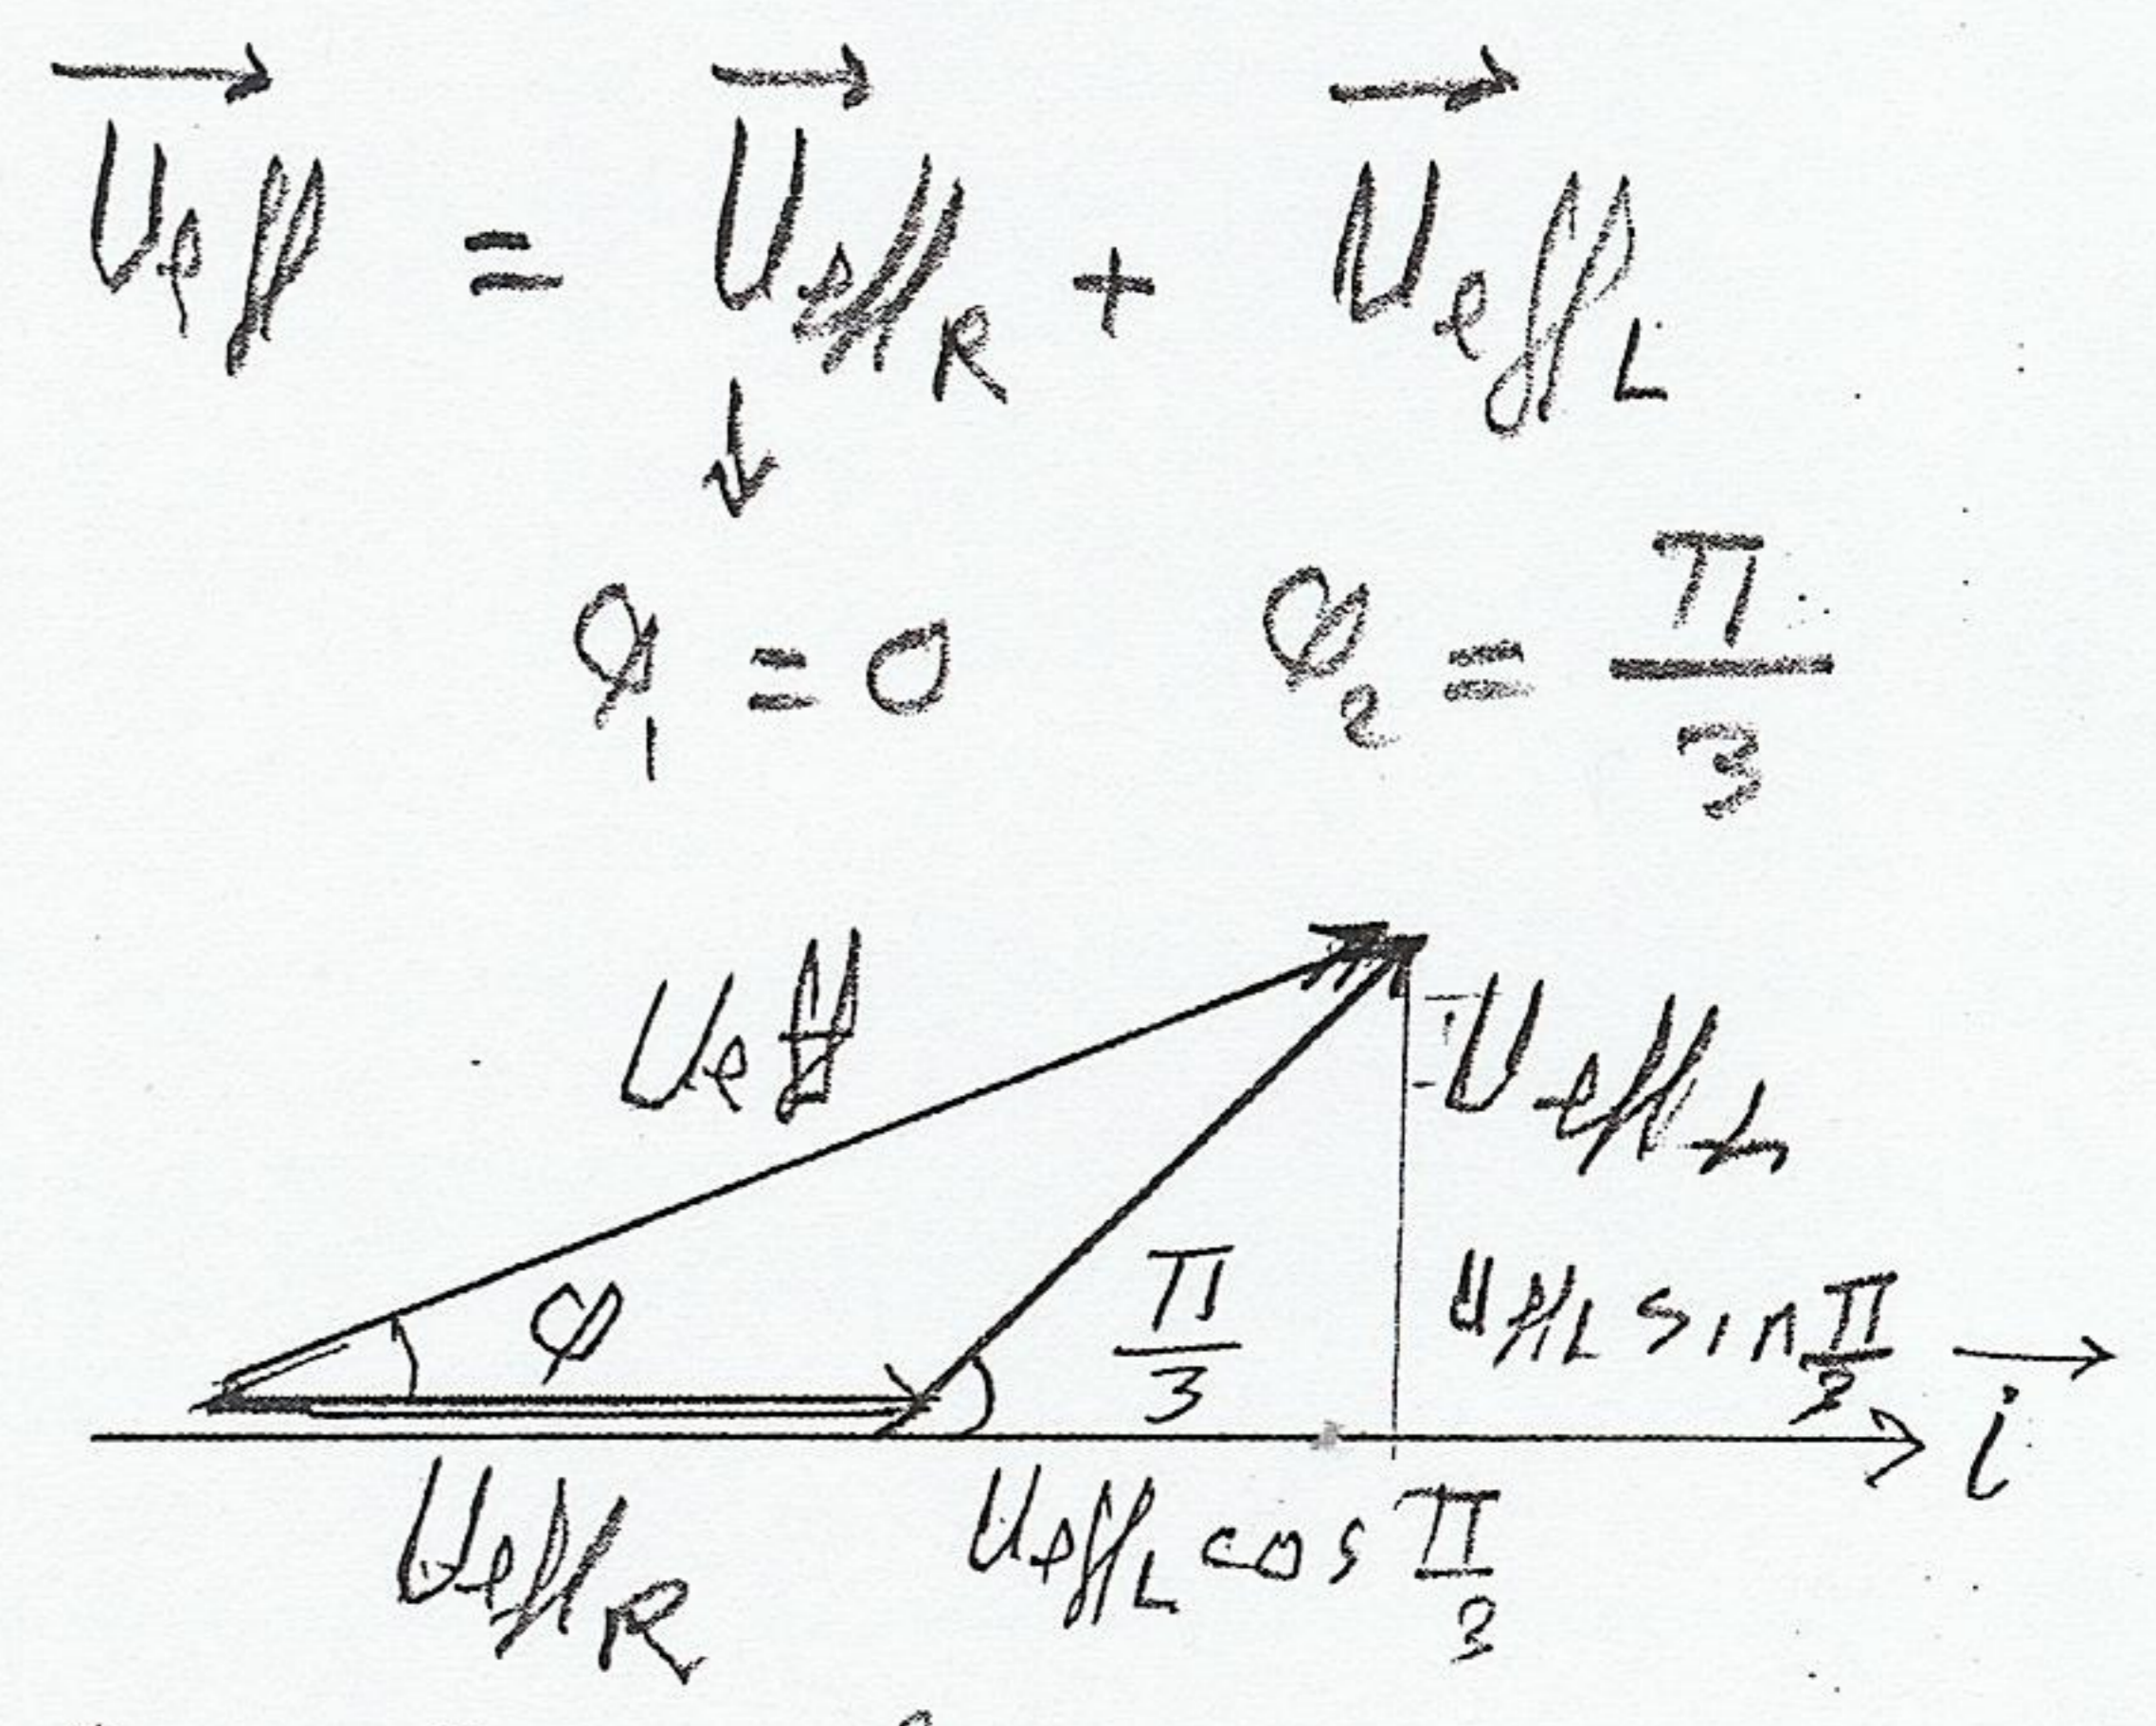 → → →
U_eff = U_eff_R + U_eff_L
↓
φ₁ = 0 φ₂ = π/3
U_eff
U_eff_L
φ π/3 U_eff_L sin π/3 →
i
U_eff_R U_eff_L cos π/3